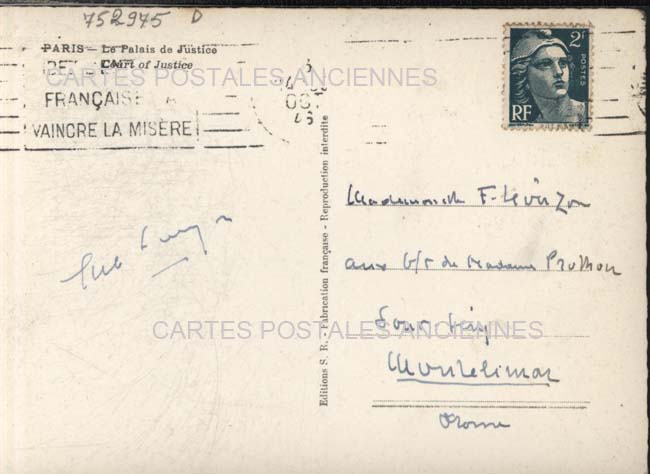 752975 D
PARIS — Le Palais de Justice
Court of Justice
FRANÇAISE
VAINCRE LA MISÈRE
4
OCT
46
2F
POSTES
RF
CARTES POSTALES ANCIENNES
Editions S. R. - Fabrication française - Reproduction interdite
Mademoiselle F.
aux b/s de Madame
Montelimar
Drome
CARTES POSTALES ANCIENNES